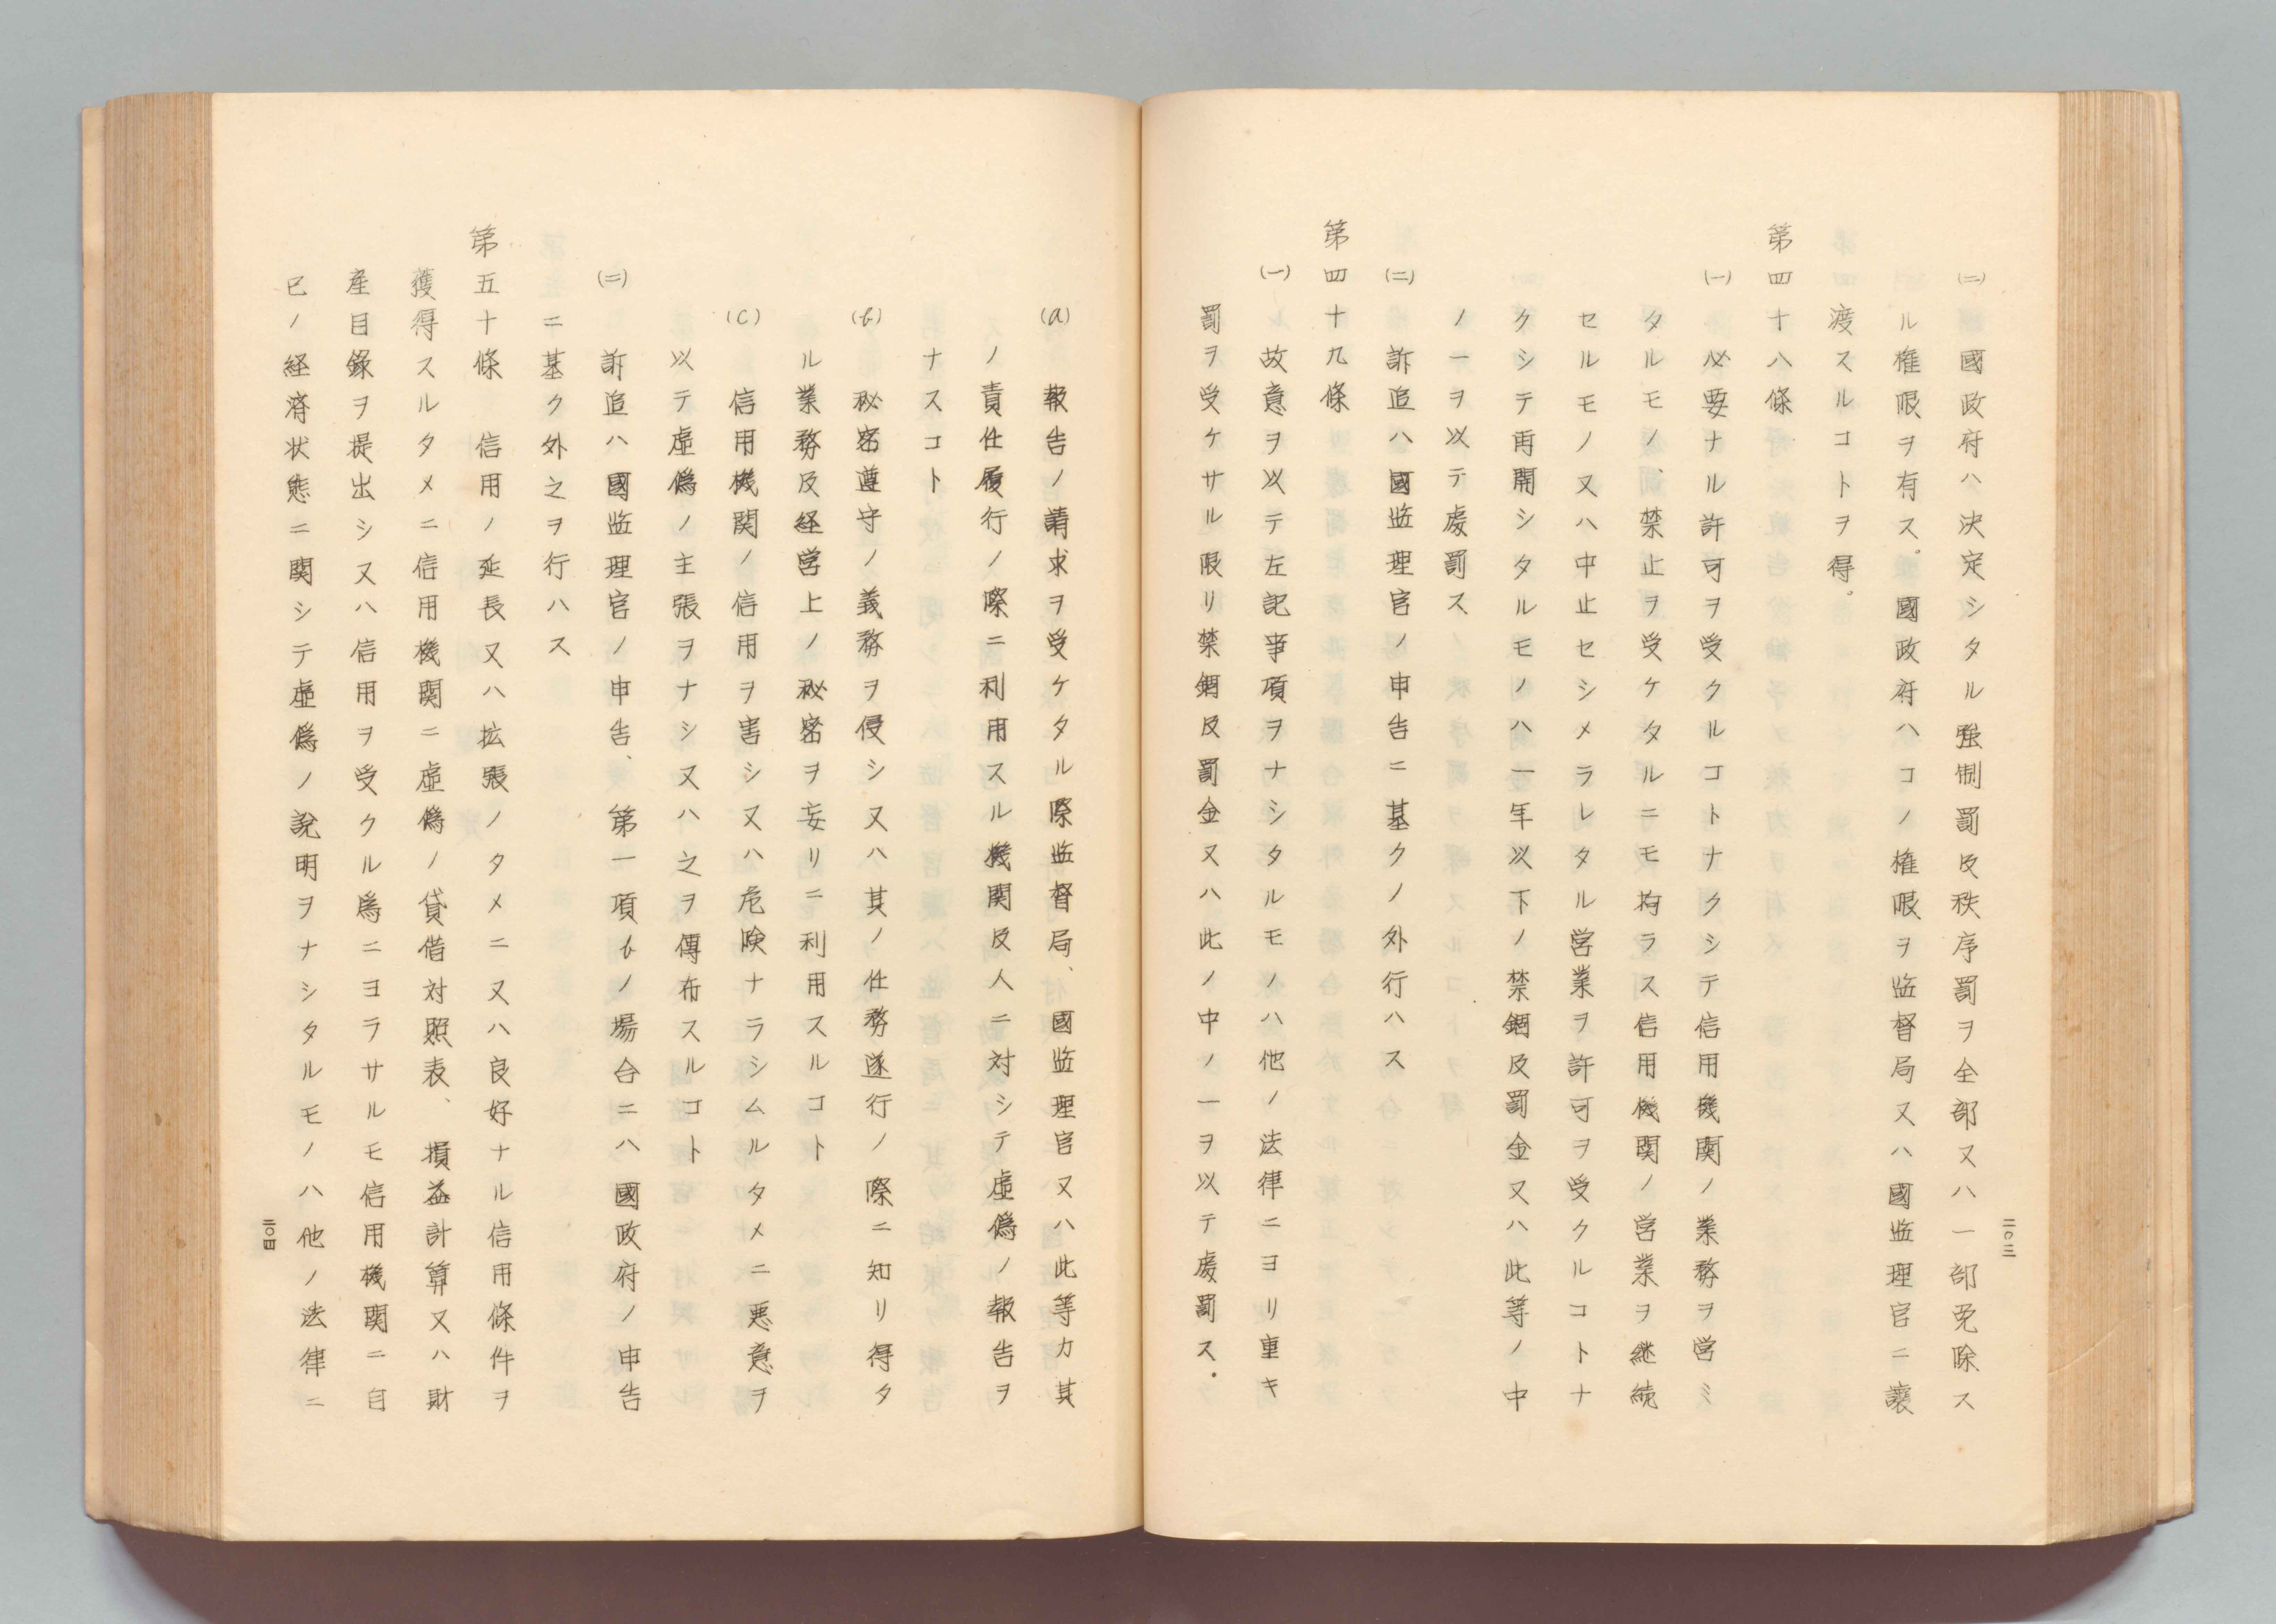 (二) 國政府ハ決定シタル强制罰及秩序罰ヲ全部又ハ一部免除ス
ル権限ヲ有ス。國政府ハコノ権限ヲ监督局又ハ國监理官ニ讓
渡スルコトヲ得。
第四十八條
(一) 必要ナル許可ヲ受クルコトナクシテ信用機関ノ業務ヲ営ミ
タルモノ、禁止ヲ受ケタルニモ拘ラス信用機関ノ営業ヲ継続
セルモノ又ハ中止セシメラレタル営業ヲ許可ヲ受クルコトナ
クシテ再開シタルモノハ一年以下ノ禁錮及罰金又ハ此等ノ中
ノ一ヲ以テ處罰ス
(二) 訴追ハ國监理官ノ申告ニ基クノ外行ハス
第四十九條
(一) 故意ヲ以テ左記事項ヲナシタルモノハ他ノ法律ニヨリ重キ
罰ヲ受ケサル限リ禁錮及罰金又ハ此ノ中ノ一ヲ以テ處罰ス.
二〇三
(a) 報告ノ請求ヲ受ケタル際监督局、國监理官又ハ此等カ其
ノ責任履行ノ際ニ利用スル機関及人ニ対シテ虛偽ノ報告ヲ
ナスコト
(b) 秘密遵守ノ義務ヲ侵シ又ハ其ノ仕務遂行ノ際ニ知リ得タ
ル業務及経営上ノ秘密ヲ妄リニ利用スルコト
(c) 信用機関ノ信用ヲ害シ又ハ危険ナラシムルタメニ悪意ヲ
以テ虛偽ノ主張ヲナシ又ハ之ヲ傳布スルコト
(二) 訴追ハ國监理官ノ申告、第一項bノ場合ニハ國政府ノ申告
ニ基ク外之ヲ行ハス
第五十條 信用ノ延長又ハ拡張ノタメニ又ハ良好ナル信用條件ヲ
獲得スルタメニ信用機関ニ虛偽ノ貸借対照表、損益計算又ハ財
産目錄ヲ提出シ又ハ信用ヲ受クル爲ニヨラサルモ信用機関ニ自
己ノ経済状態ニ関シテ虛偽ノ說明ヲナシタルモノハ他ノ法律ニ
二〇四